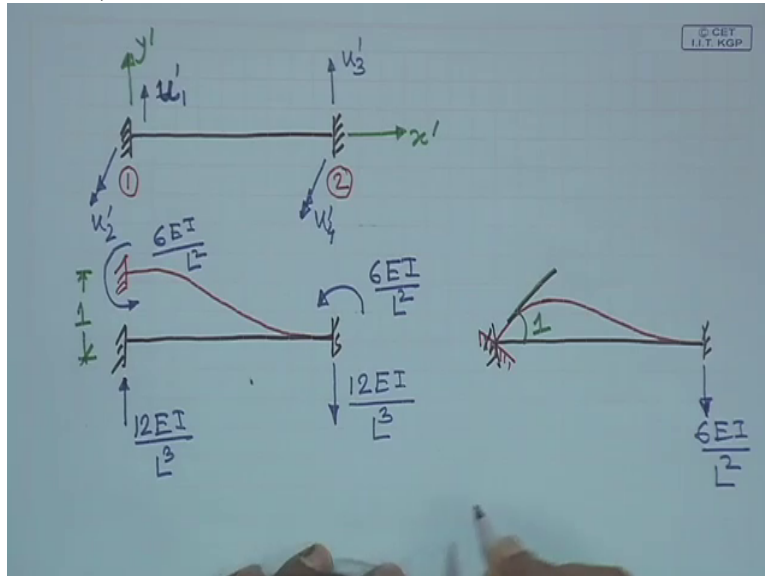 © CET
I.I.T. KGP
y'
u'₁
u'₃
x'
①
②
u'₂
u'₄
6EI
L²
6EI
L²
1
1
12EI
L³
12EI
L³
6EI
L²